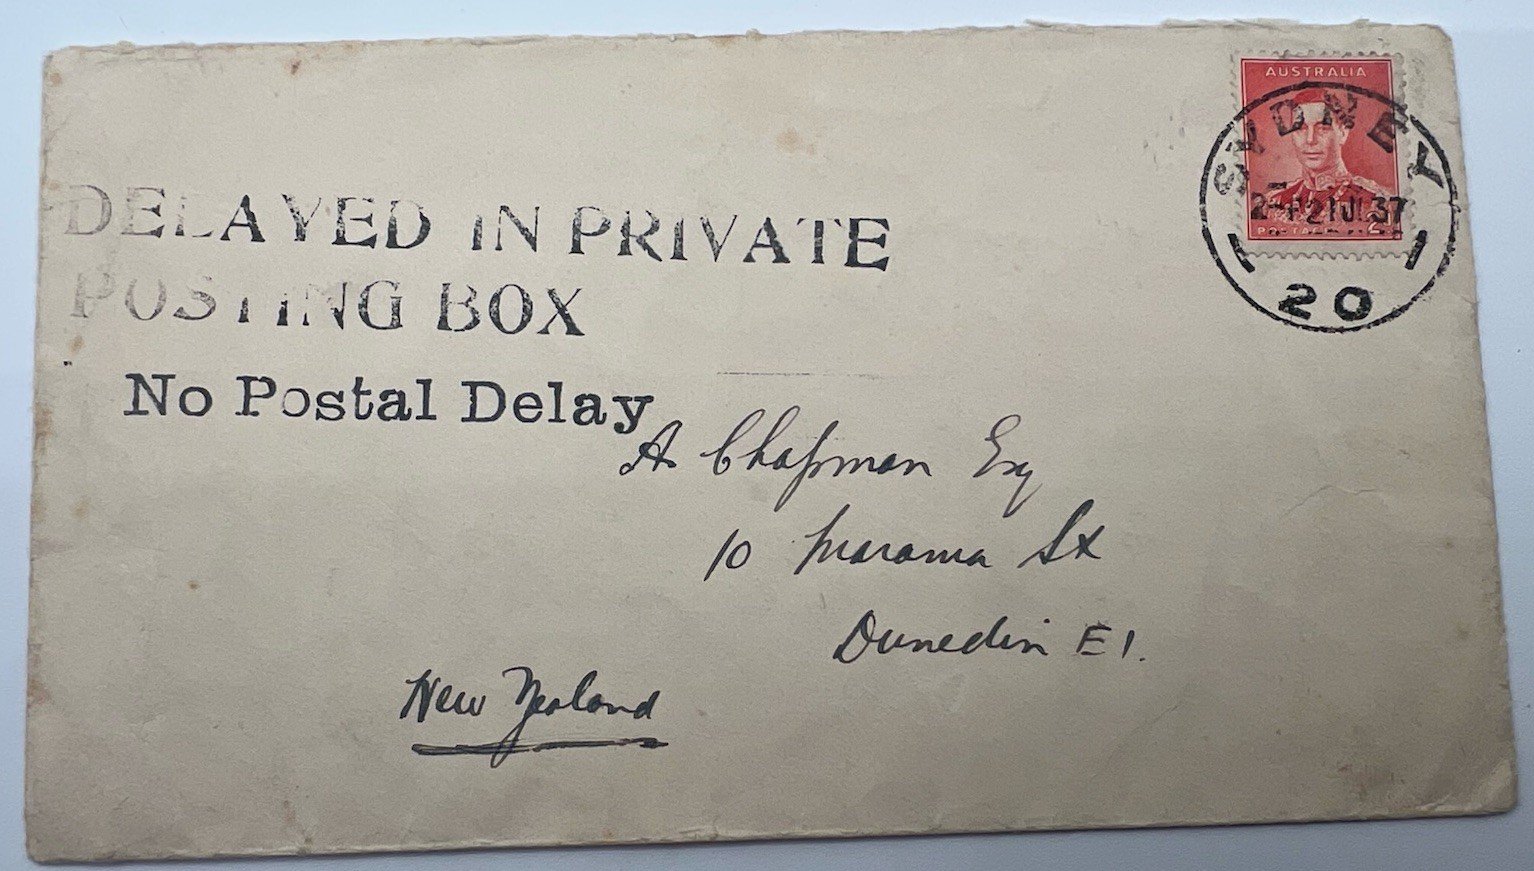 AUSTRALIA
SYDNEY
21 JL 37
20
DELAYED IN PRIVATE
POSTING BOX
No Postal Delay
A Chapman Esq
10 Marama St
Dunedin E1.
New Zealand